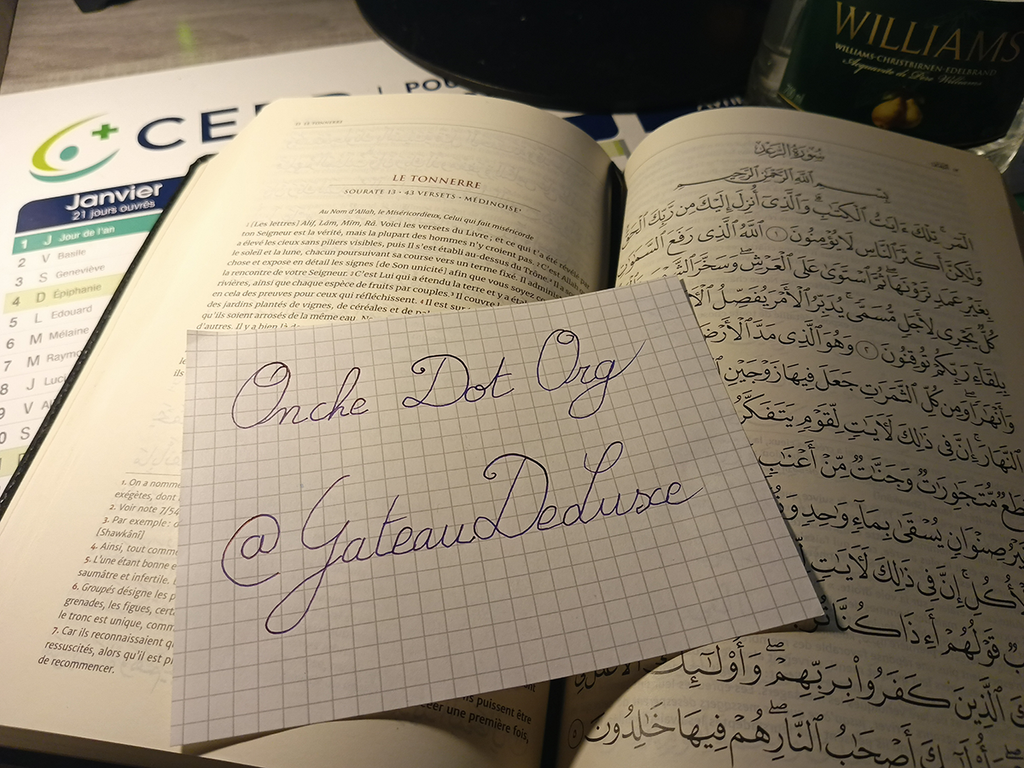 WILLIAMS
WILLIAMS-CHRISTBIRNEN-EDELBRAND
POU
Janvier
21 jours ouvrés
1 J Jour de l'an
2 V Basile
3 S Geneviève
4 D Épiphanie
5 L Edouard
6 M Mélaine
7 M Raymo
8 J Luci
9 V
S
LE TONNERRE
SOURATE 13 • 43 VERSETS • MEDINOISE
Au Nom d'Allah, le Miséricordieux, Celui qui fait miséricorde
1 [Les lettres] Alif, Lâm, Mîm, Râ. Voici les versets du Livre ; et ce qui t'a été révélé par
ton Seigneur est la vérité, mais la plupart des hommes n'y croient pas. 2 C'est Allah qui
a élevé les cieux sans piliers visibles, puis Il s'est établi au-dessus du Trône et a soumis
le soleil et la lune, chacun poursuivant sa course vers un terme fixé. Il administre
chose et expose en détail les signes (de Son unicité) afin que vous soyez
rencontre de votre Seigneur. 3 C'est Lui qui a étendu la terre et y a
rivières, ainsi que chaque espèce de fruits par couples. Il couvre
en cela des preuves pour ceux qui réfléchissent. 4 Il est sur
des jardins plantés de vignes, de céréales et de
qu'ils soient arrosés de la même eau.
d'autres. Il y a bien là
Onche Dot Org
@GateauDeLuxe
1. On a nomm
exégètes, dont
2. Voir note 7/54
3. Par exemple :
[Shawkânî]
4. Ainsi, tout comm
5. L'une étant bonne e
saumâtre et infertile.
6. Groupés désigne les p
grenades, les figues, cert
le tronc est unique, comm
7. Car ils reconnaissaient q
ressuscités, alors qu'il est p
de recommencer.
puissent être
créer une première fois,
سُورَةُ الرَّعْدِ
بِسْمِ اللَّهِ الرَّحْمَٰنِ الرَّحِيمِ
الٓمٓر ۚ تِلْكَ ءَايَٰتُ ٱلْكِتَٰبِ ۗ وَٱلَّذِىٓ أُنزِلَ إِلَيْكَ مِن رَّبِّكَ ٱلْحَقُّ
وَلَٰكِنَّ أَكْثَرَ ٱلنَّاسِ لَا يُؤْمِنُونَ ١ ٱللَّهُ ٱلَّذِى رَفَعَ ٱلسَّمَٰوَٰتِ
بِغَيْرِ عَمَدٍ تَرَوْنَهَا ۖ ثُمَّ ٱسْتَوَىٰ عَلَى ٱلْعَرْشِ ۖ وَسَخَّرَ ٱلشَّمْسَ
كُلٌّ يَجْرِى لِأَجَلٍ مُّسَمًّى ۚ يُدَبِّرُ ٱلْأَمْرَ يُفَصِّلُ
بِلِقَآءِ رَبِّكُمْ تُوقِنُونَ ٢ وَهُوَ ٱلَّذِى مَدَّ ٱلْأَرْضَ
وَأَنْهَٰرًا ۖ وَمِن كُلِّ ٱلثَّمَرَٰتِ جَعَلَ فِيهَا زَوْجَيْنِ
ٱلنَّهَارَ ۚ إِنَّ فِى ذَٰلِكَ لَءَايَٰتٍ لِّقَوْمٍ يَتَفَكَّرُونَ
قِطَعٌ مُّتَجَٰوِرَٰتٌ وَجَنَّٰتٌ مِّنْ أَعْنَٰبٍ
وَغَيْرُ صِنْوَانٍ يُسْقَىٰ بِمَآءٍ وَٰحِدٍ
ٱلْأُكُلِ ۚ إِنَّ فِى ذَٰلِكَ لَءَايَٰتٍ
قَوْلُهُمْ أَءِذَا كُنَّا
ٱلَّذِينَ كَفَرُوا۟ بِرَبِّهِمْ ۖ وَأُو۟لَٰٓئِكَ
أَصْحَٰبُ ٱلنَّارِ ۖ هُمْ فِيهَا خَٰلِدُونَ ٥